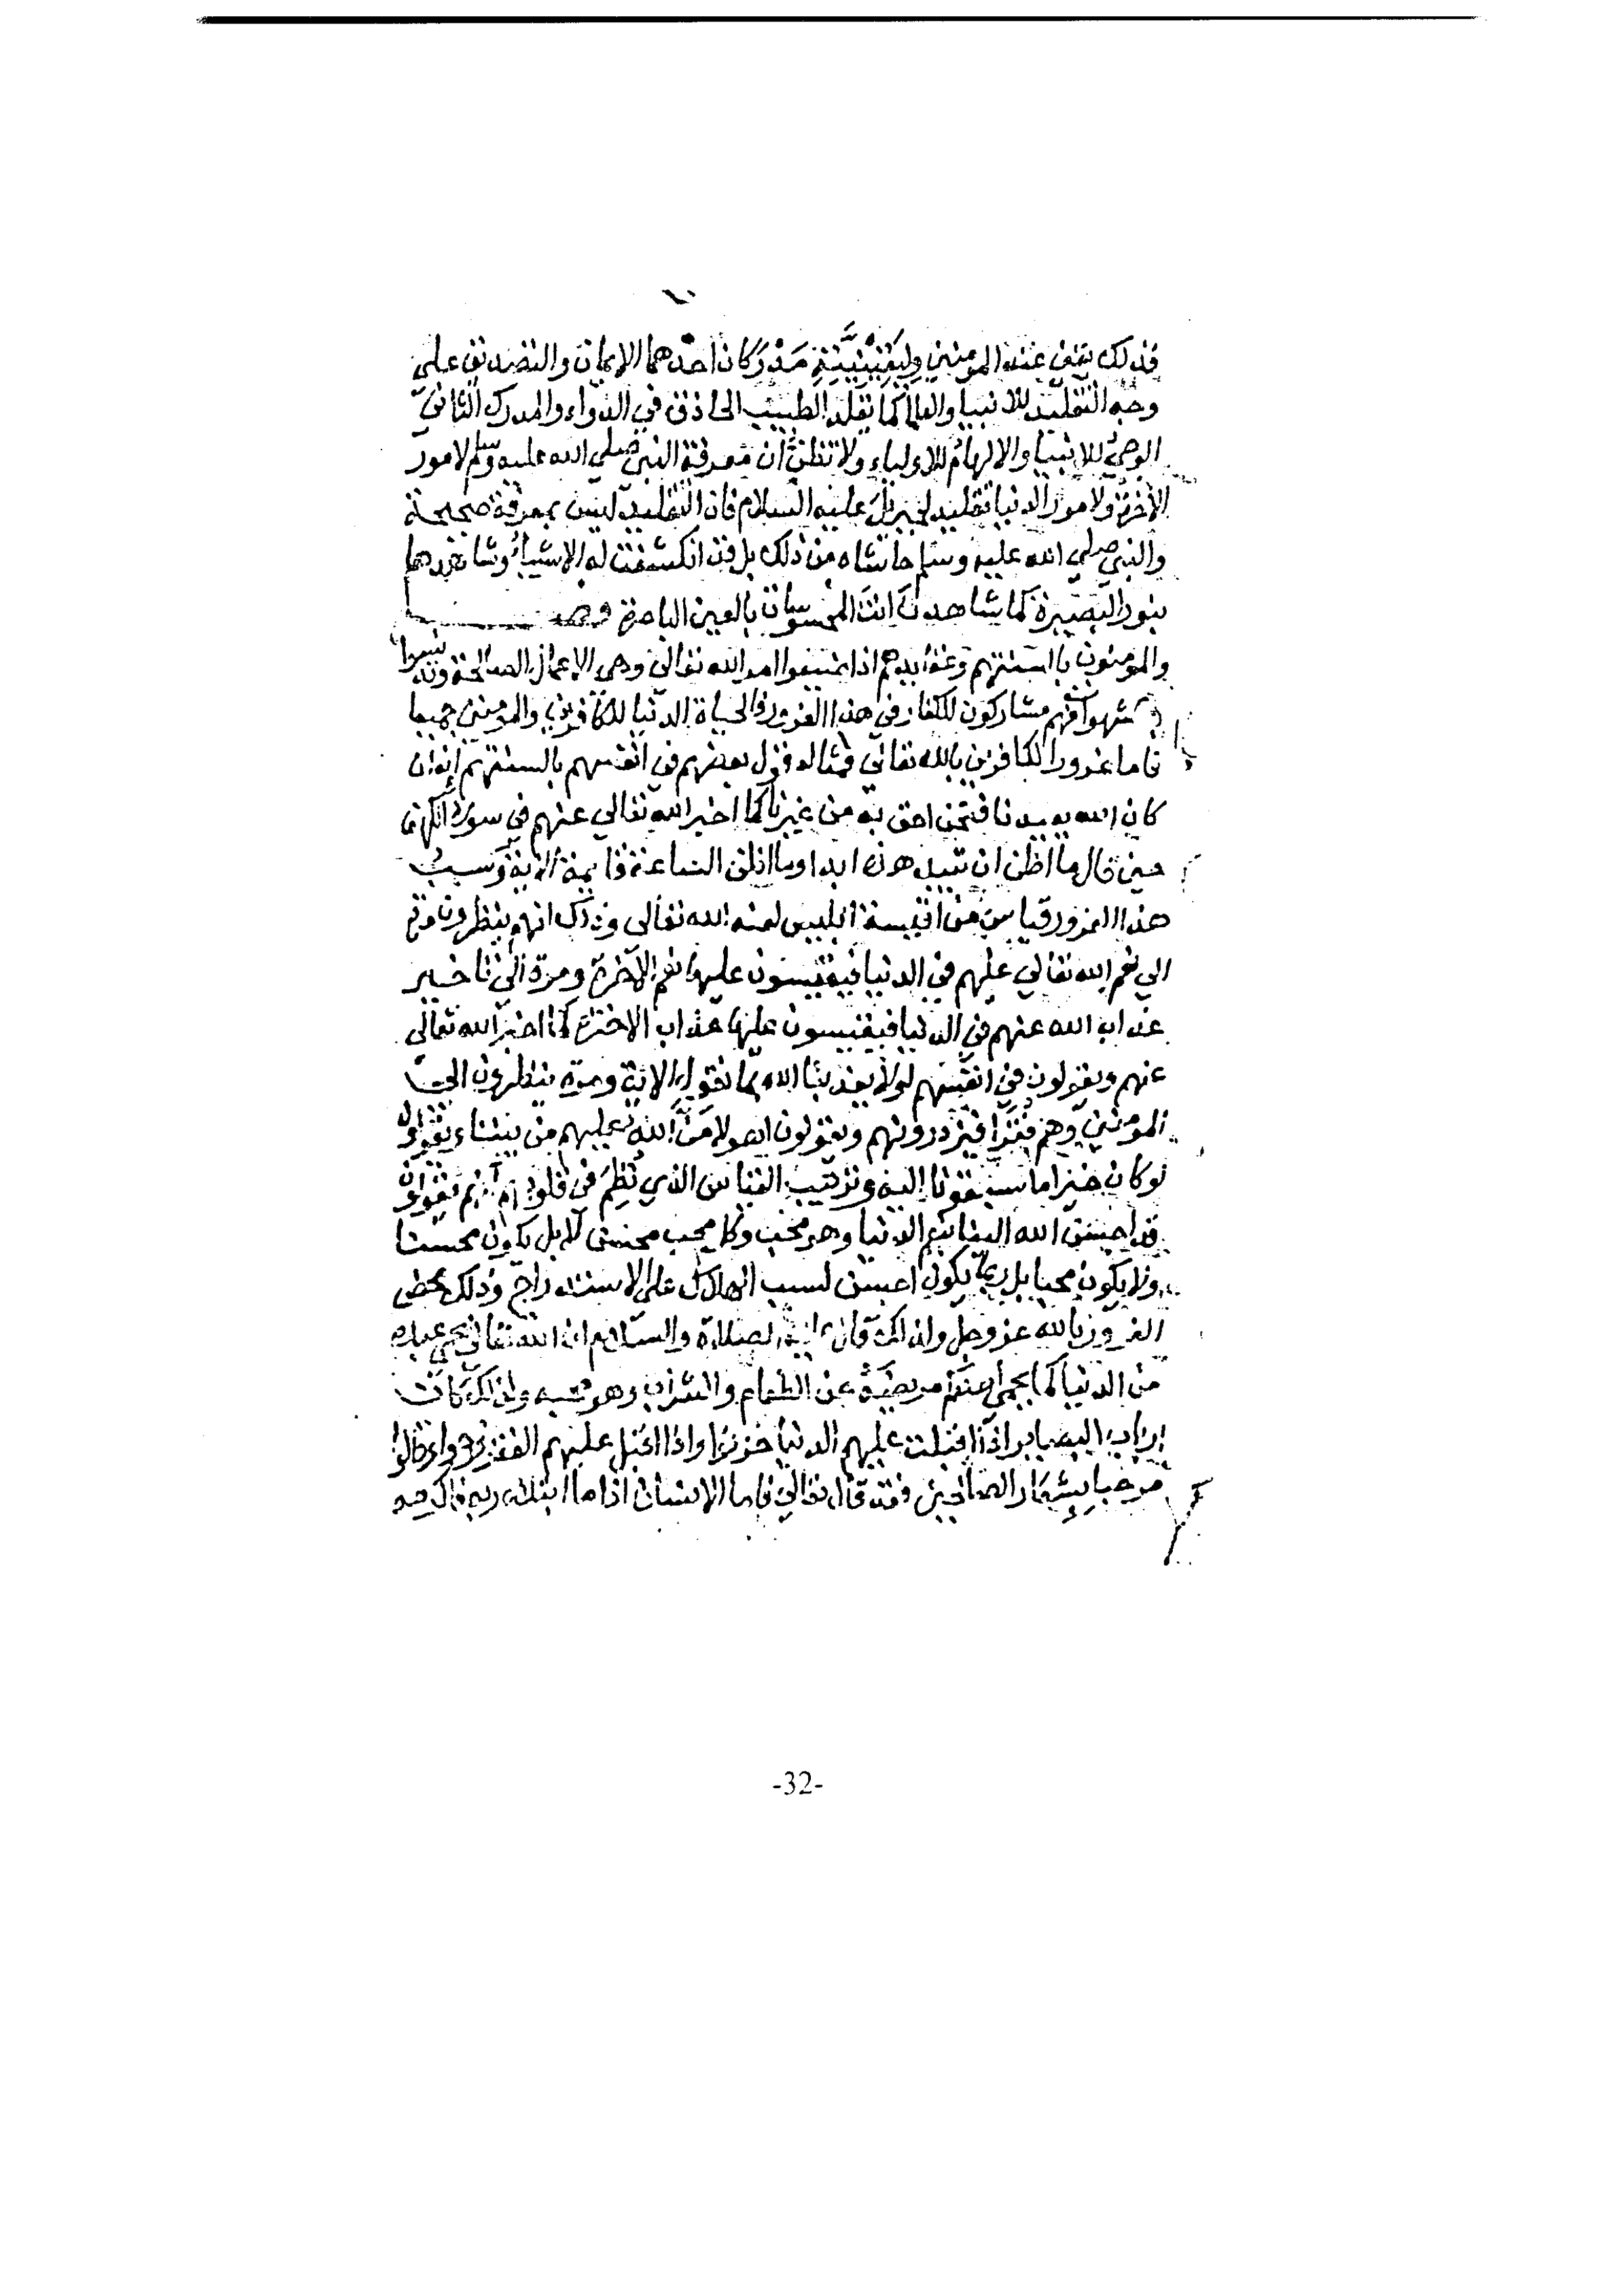 فذلك يقين عند المومنين وليقينيته مدركان احدهما الايمان والتصديق على
وجه التقليد للانبيا والعلما كما تقلد الطبيب الحاذق في الدواء والمدرك الثاني
الوحي للانبيا والالهام للاولياء ولا تظن ان معرفة النبي صلي الله عليه وسلم لامور
الاخرة ولامور الدنيا تقليد لجبريل عليه السلام فان التقليد ليس بمعرفة صحيحة
والنبي صلي الله عليه وسلم حاشاه من ذلك بل قد انكشفت له الاشياء وشاهدها
بنور البصيرة كما شاهدت انت المحسوسات بالعين الباصرة فصـ
والمومنون بالسنتهم وعقايدهم اذا ضيعوا امر الله تعالى وهي الاعمال الصالحة
شهوات فهم مشاركون للكفار في هذا الغرور فالحياة الدنيا للكافرين والمومنين جميعا
فاما غرور الكافرين بالله تعالى فمثاله قول بعضهم في انفسهم بالسنتهم انه ان
كان الله يعيدنا فنحن احق به من غيرنا كما اخبر الله تعالي عنهم في سورة الكهف
حين قال ما اظن ان تبيد هذه ابدا وما اظن الساعة قايمة الاية وسبب
هذا الغرور قياس من اقيسة ابليس لعنه الله تعالى وذلك انهم ينظرون مرة
الي نعم الله تعالي عليهم في الدنيا فيقيسون عليها نعم الاخرة ومرة الى تاخير
عذاب الله عنهم في الدنيا فيقيسون عليها عذاب الاخرة كما اخبر الله تعالى
عنهم ويقولون في انفسهم لولا يعذبنا الله بما نقول الاية ومرة ينظرون الى
المومنين وهم فقرا فيزدرونهم ويقولون اهولا من الله عليهم من بيننا ويقولون
لو كان خيرا ما سبقونا اليه وترتيب القياس الذي نظم في قلوبهم انهم يقولون
قد احسن الله الينا بنعيم الدنيا وهو محب وكل محب محسن كلا بل يكون محسنا
ولا يكون محبا بل ربما يكون احسن لسبب الهلاك على الاستدراج وذلك محض
الغرور بالله عز وجل ولذلك قال عليه الصلاة والسلام ان الله تعالى يحمي عبده
من الدنيا كما يحمي احدكم مريضه عن الطعام والشراب وهو يحبه ولذلك كانت
ارباب البصاير اذا اقبلت عليهم الدنيا حزنوا واذا اقبل عليهم الفقر فرحوا وقالوا
مرحبا بشعار الصالحين فقد قال تعالى فاما الانسان اذا ما ابتلاه ربه فاكرمه
-32-